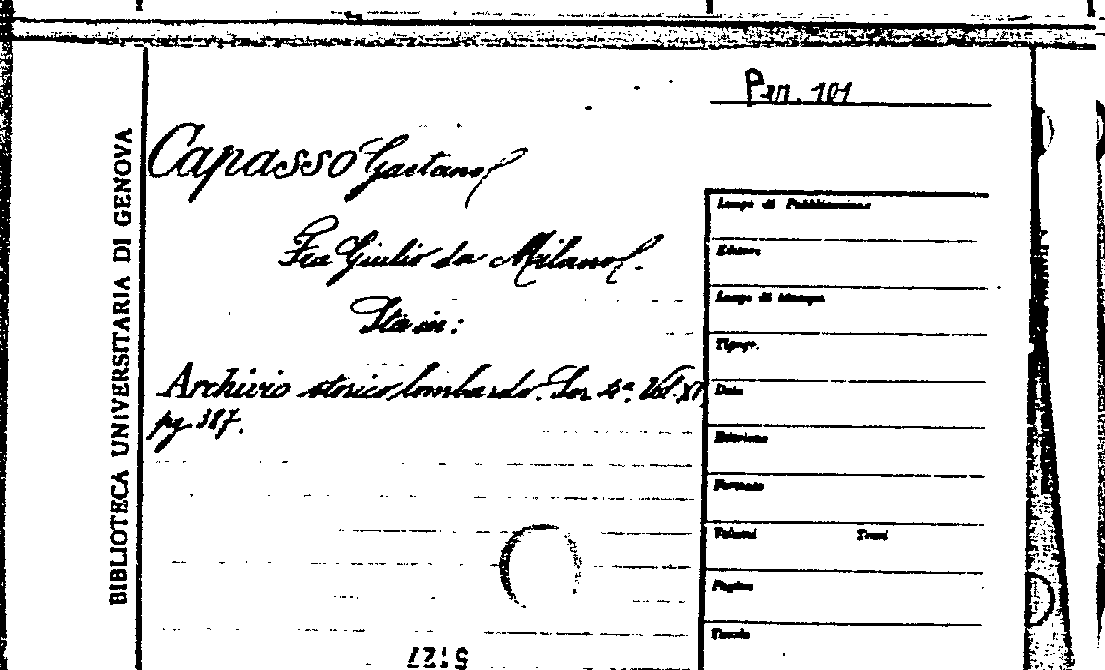 Per. 101
BIBLIOTECA UNIVERSITARIA DI GENOVA
Capasso Gaetano
Fra Giulio da Milano.
Sta in:
Archivio storico lombardo. Ser. 4ª. Vol. XI,
pg. 387.
Luogo di Pubblicazione
Editore
Luogo di stampa
Tipogr.
Data
Edizione
Formato
Volumi Tomi
Pagine
Tavole